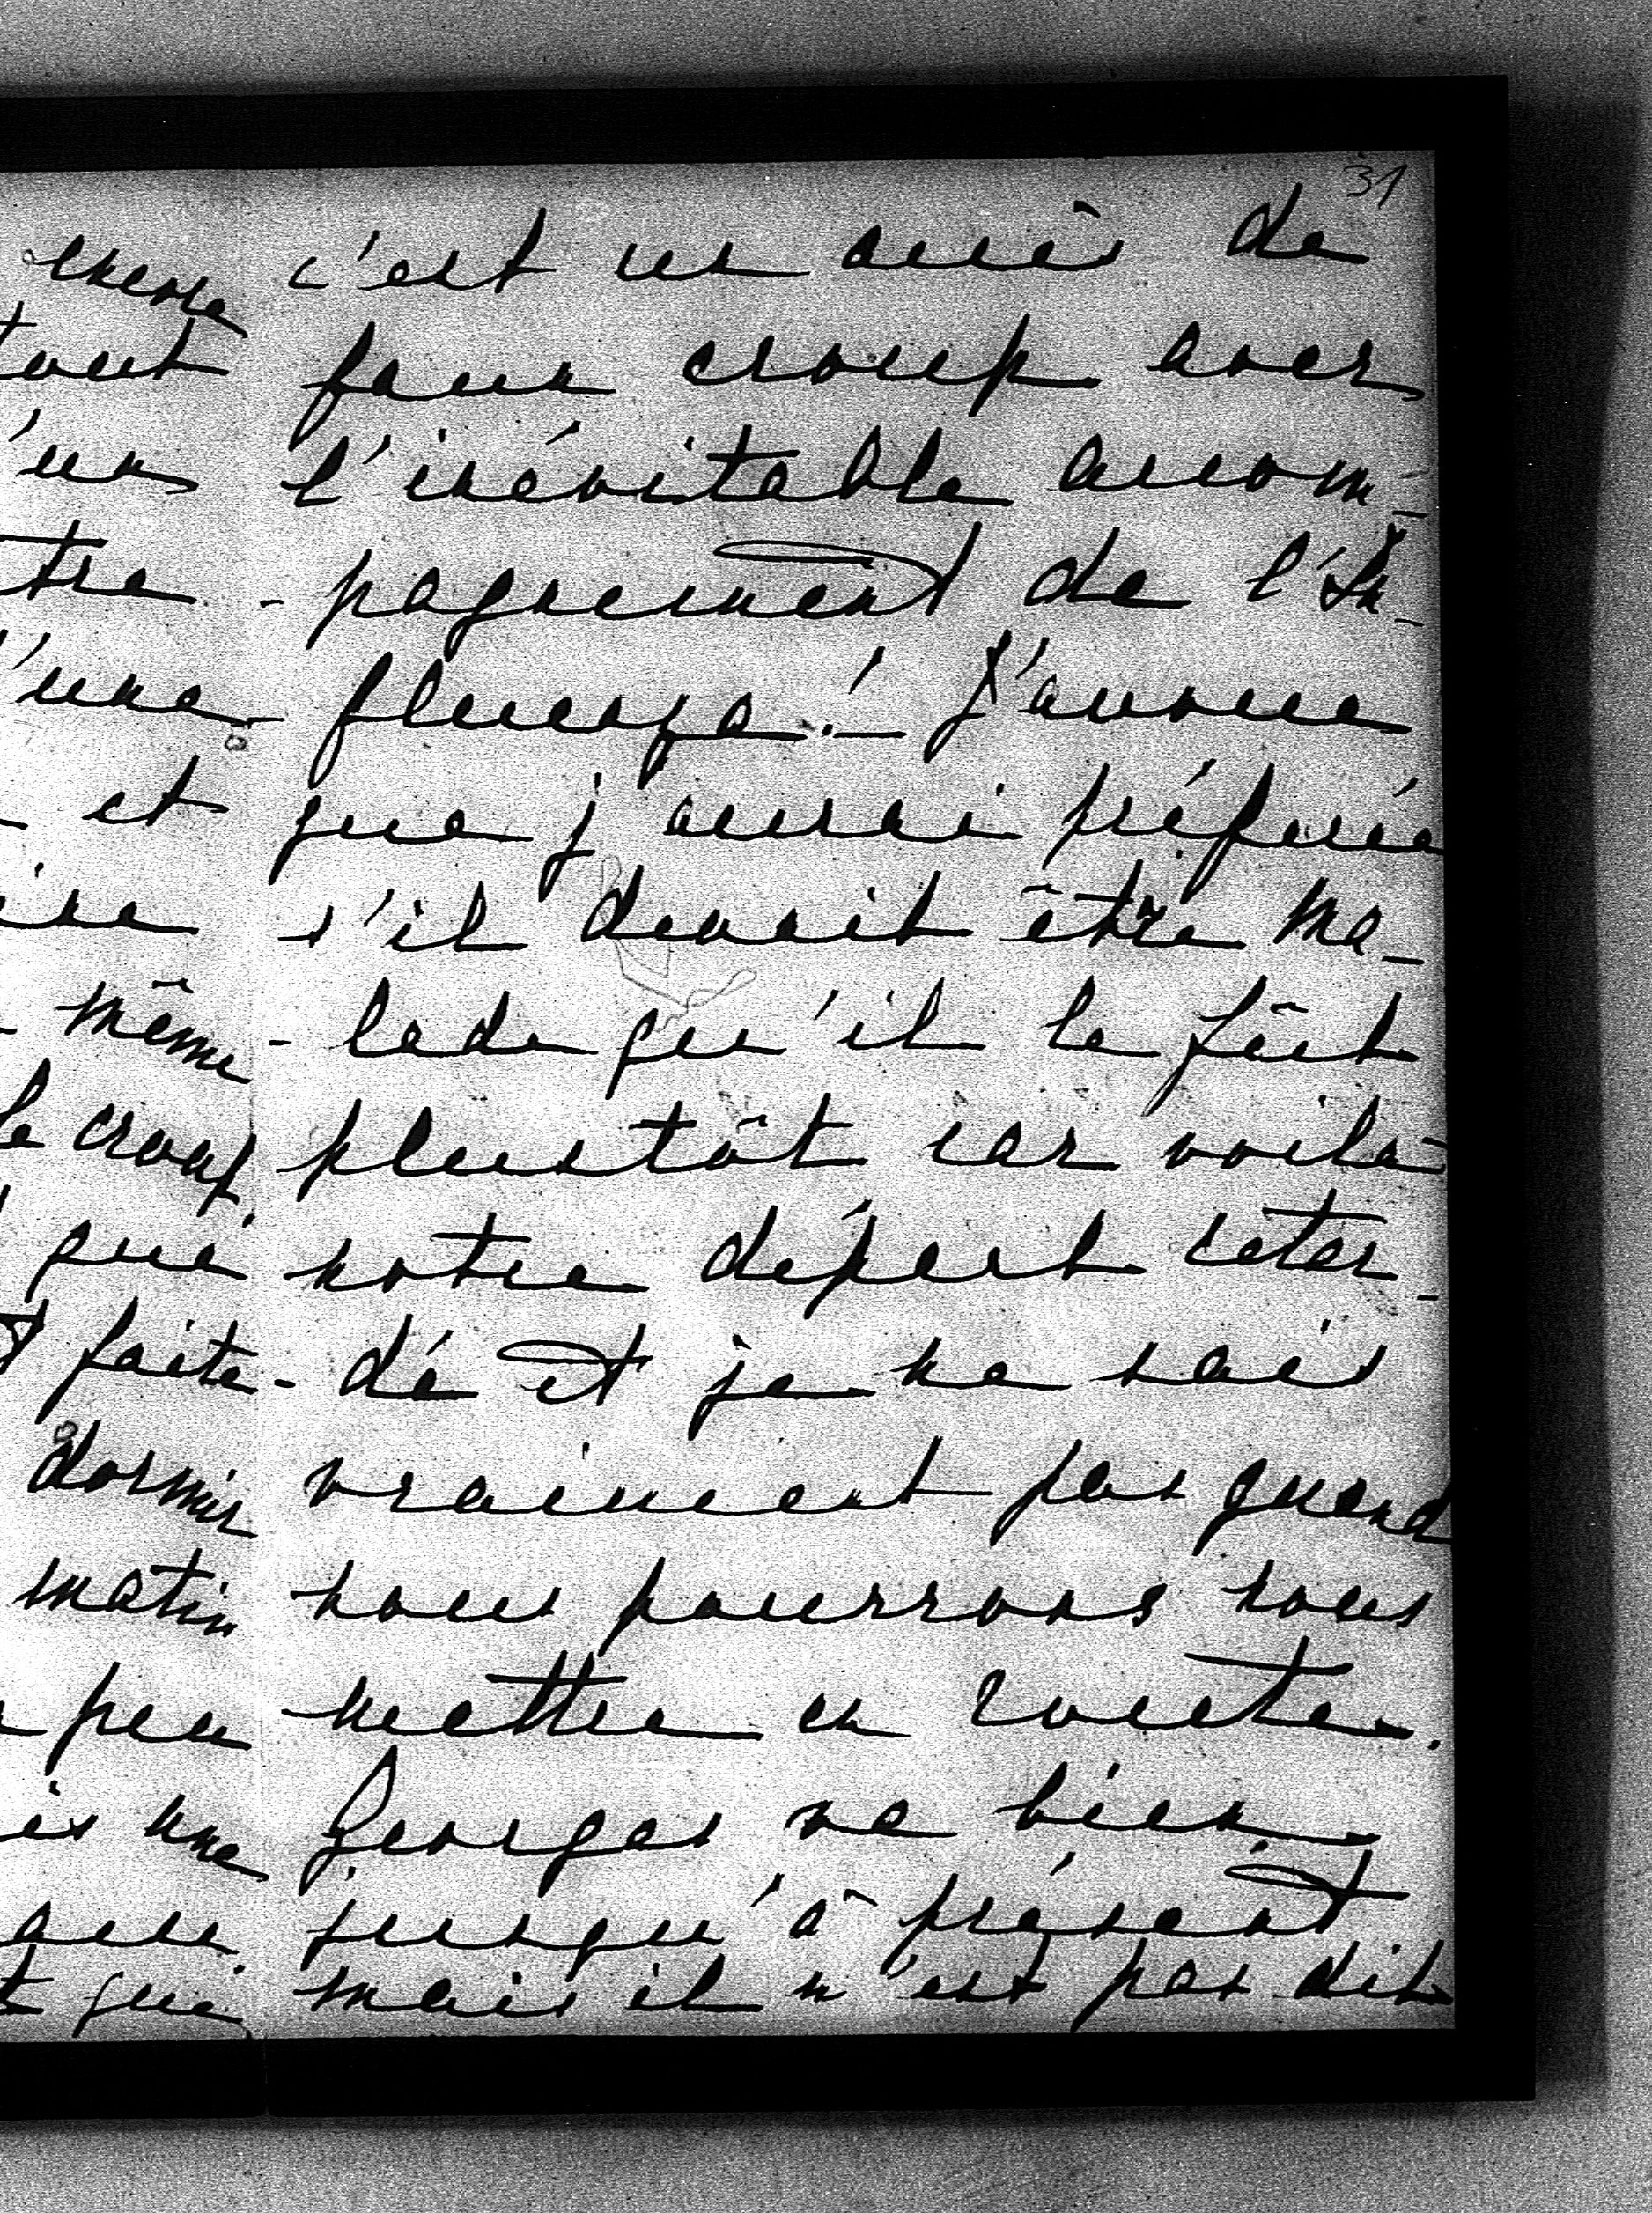 31
encore
tout
'un
tre
l'une
et
ine
même
le croup.
que
faite
dormir
matin
peu
is une
que
c'est un accès de
faux croup avec
l'inévitable accom-
-pagnement de l'In-
-fluenza! — J'avoue
que j'aurai préférée
s'il devait être ma-
-lade qu'il le fût
plustôt car voilà
notre départ retar-
-dé et je ne sais
vraiment pas quand
nous pourrons nous
mettre en route.
Georges va bien
jusqu'à présent
mais il n'est pas dit